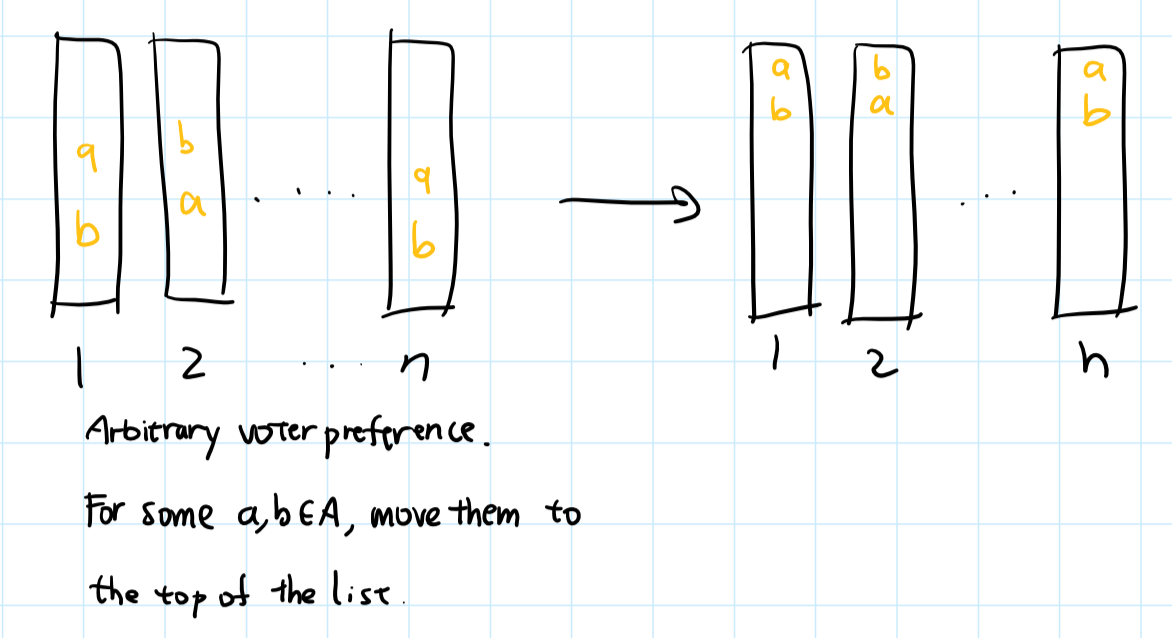 a b a a b a
b a b b a b
1 2 ... n 1 2 n
Arbitrary voter preference.
For some a,b∈A, move them to
the top of the list.